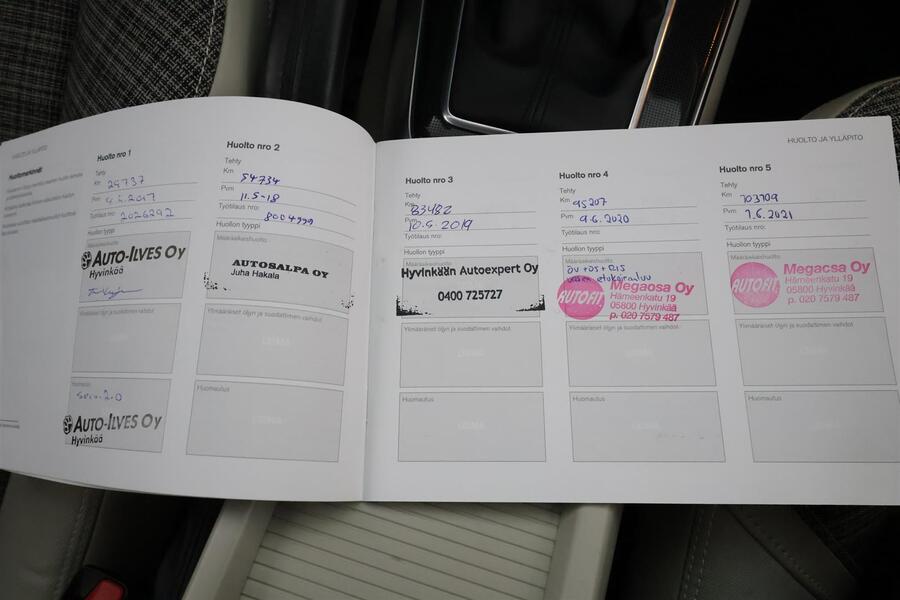 HUOLTO JA YLLÄPITO
Huoltomerkinnät
Huolto nro 1
Tehty
Km 29737
Pvm 4.2.2017
Työtilaus nro: 2026292
Huollon tyyppi
Määräaikaishuolto
AUTO-ILVES Oy
Hyvinkää
Ylimääräiset öljyn ja suodattimen vaihdot
Huomautus
AUTO-ILVES Oy
Hyvinkää
Huolto nro 2
Tehty
Km 54734
Pvm 11.5-18
Työtilaus nro: 8004999
Huollon tyyppi
Määräaikaishuolto
AUTOSALPA OY
Juha Hakala
Ylimääräiset öljyn ja suodattimen vaihdot
Huomautus
HUOLTO JA YLLÄPITO
Huolto nro 3
Tehty
Km 83482
Pvm 10.5.2019
Työtilaus nro:
Huollon tyyppi
Määräaikaishuolto
Hyvinkään Autoexpert Oy
0400 725727
Ylimääräiset öljyn ja suodattimen vaihdot
Huomautus
Huolto nro 4
Tehty
Km 95207
Pvm 9.6.2020
Työtilaus nro:
Huollon tyyppi
Määräaikaishuolto
AUTOFIT
Megaosa Oy
Hämeenkatu 19
05800 Hyvinkää
p. 020 7579 487
Ylimääräiset öljyn ja suodattimen vaihdot
Huomautus
Huolto nro 5
Tehty
Km 103709
Pvm 7.6.2021
Työtilaus nro:
Huollon tyyppi
Määräaikaishuolto
AUTOFIT
Megaosa Oy
Hämeenkatu 19
05800 Hyvinkää
p. 020 7579 487
Ylimääräiset öljyn ja suodattimen vaihdot
Huomautus